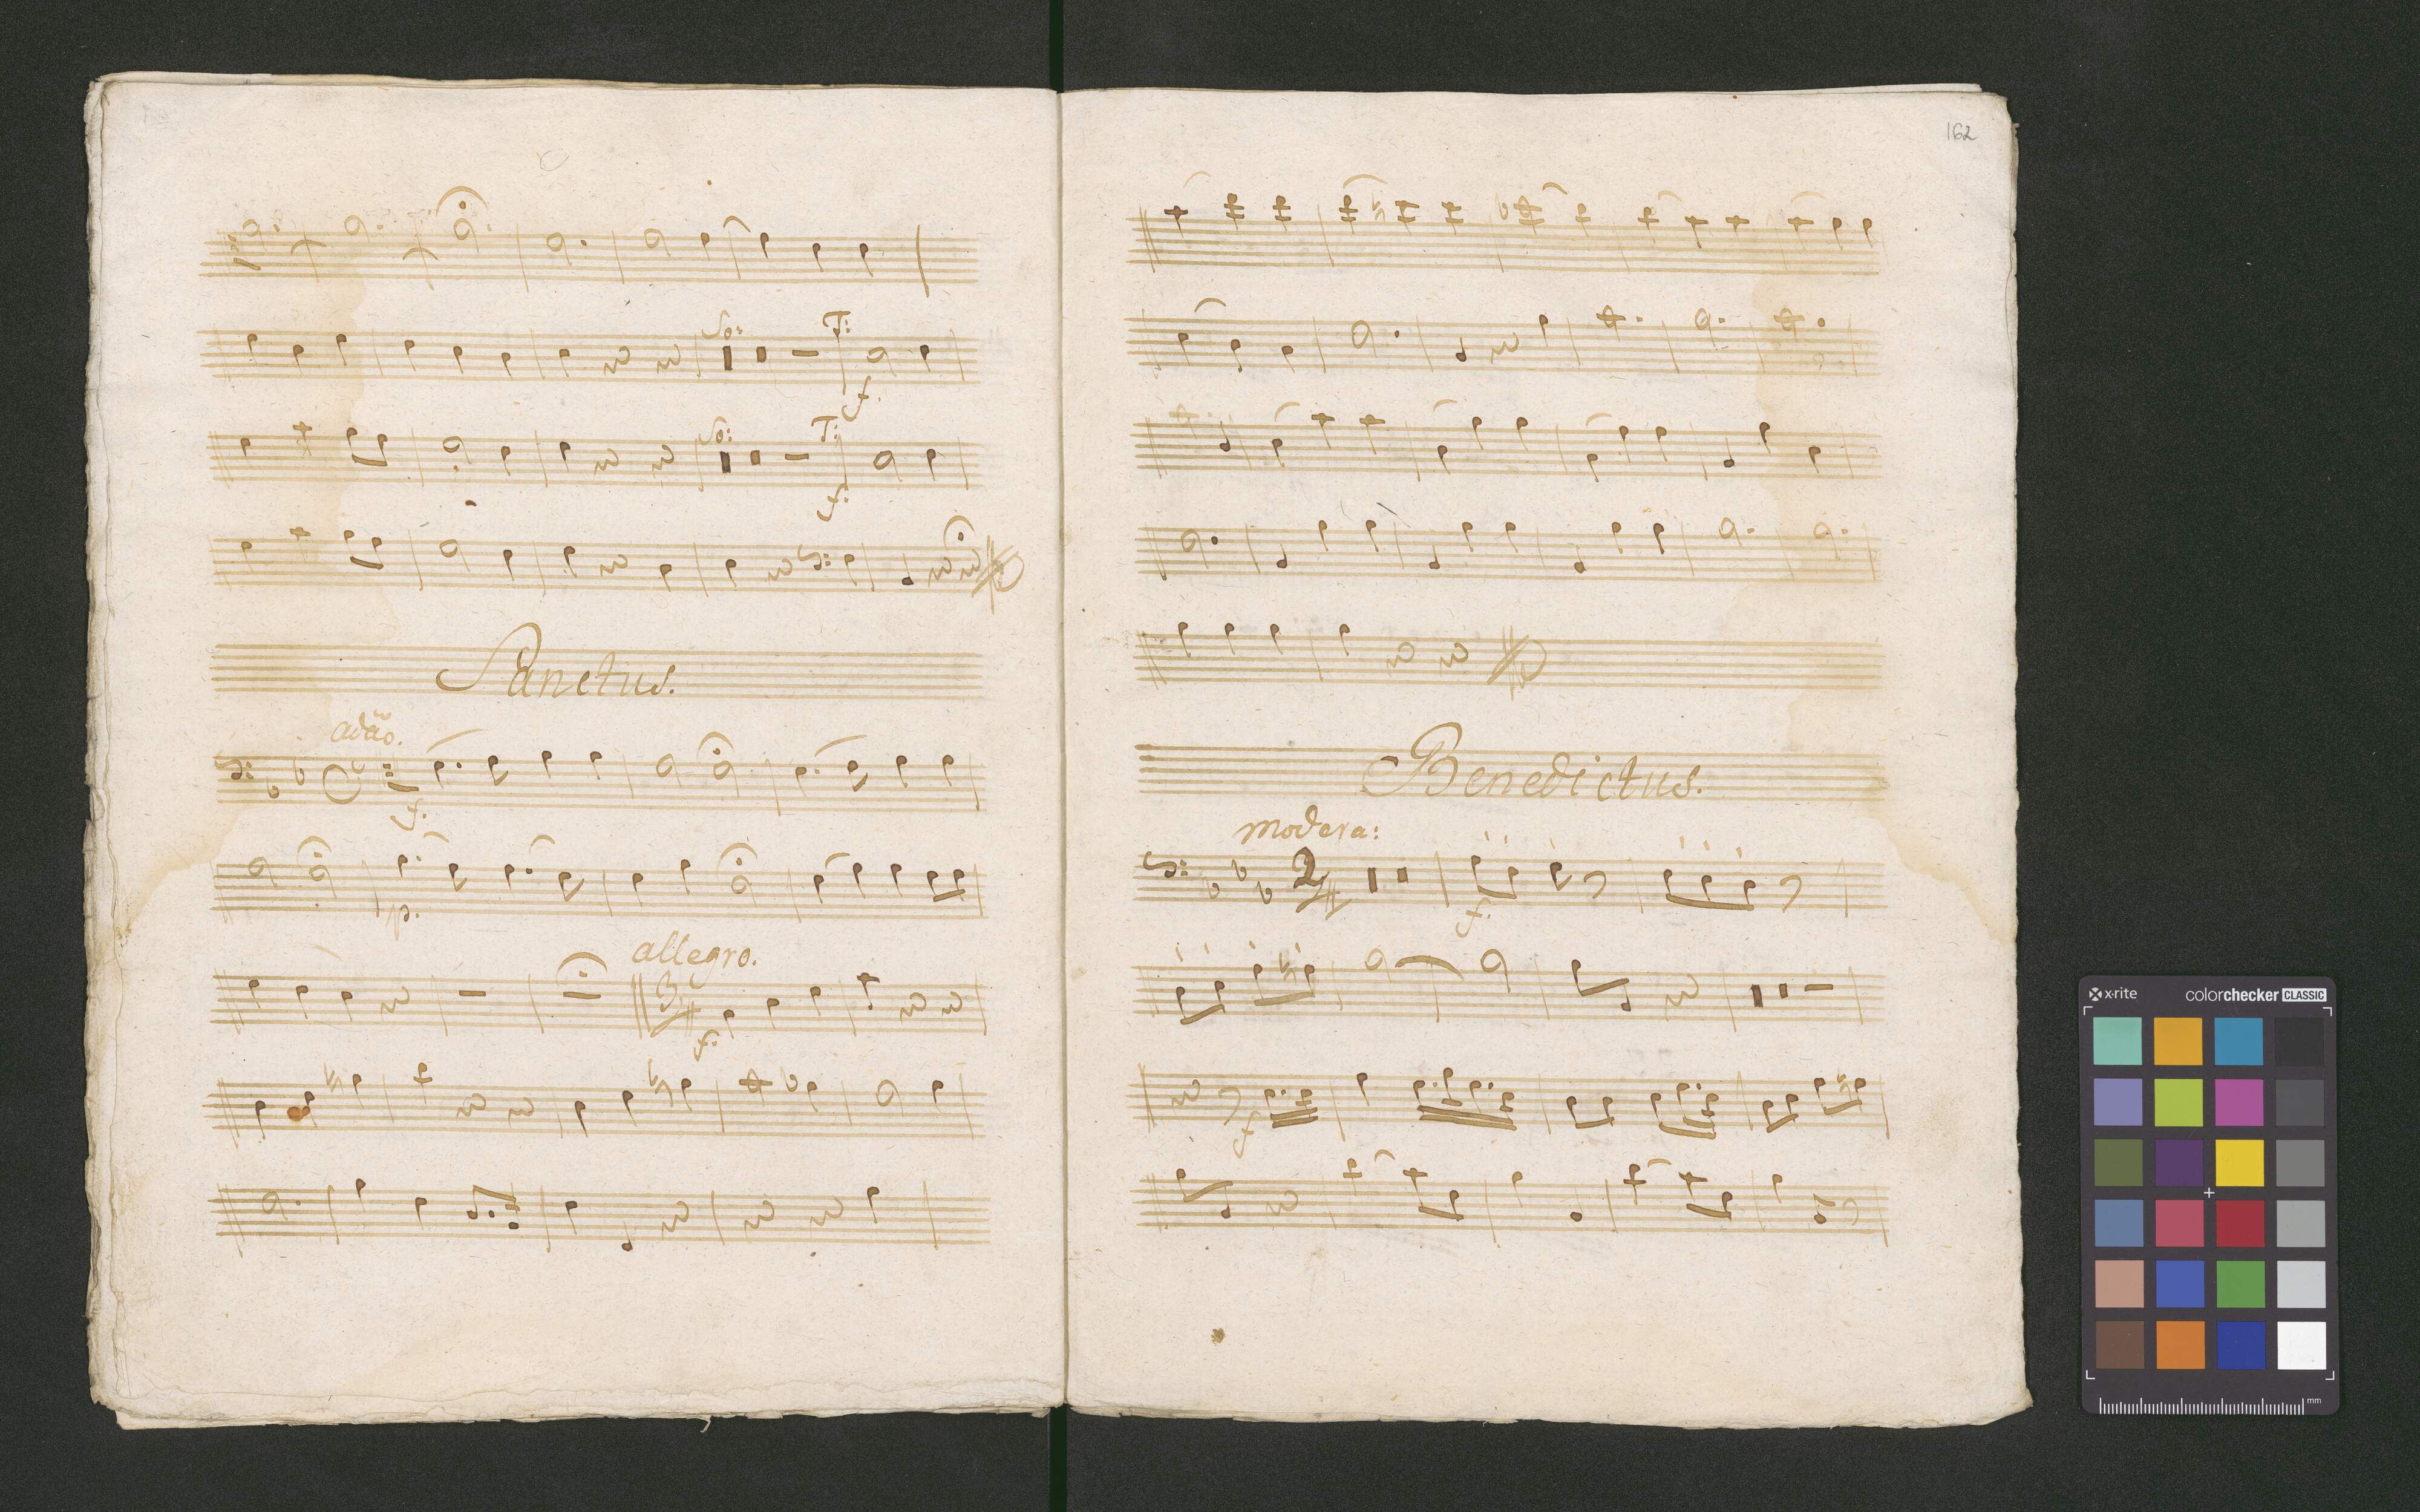 So: T:
f.
So: T:
f.
Sanctus.
adão.
f.
p.
allegro.
3/4
f.
162
Benedictus.
modera:
2/4
f.
f.
x-rite colorchecker CLASSIC
mm